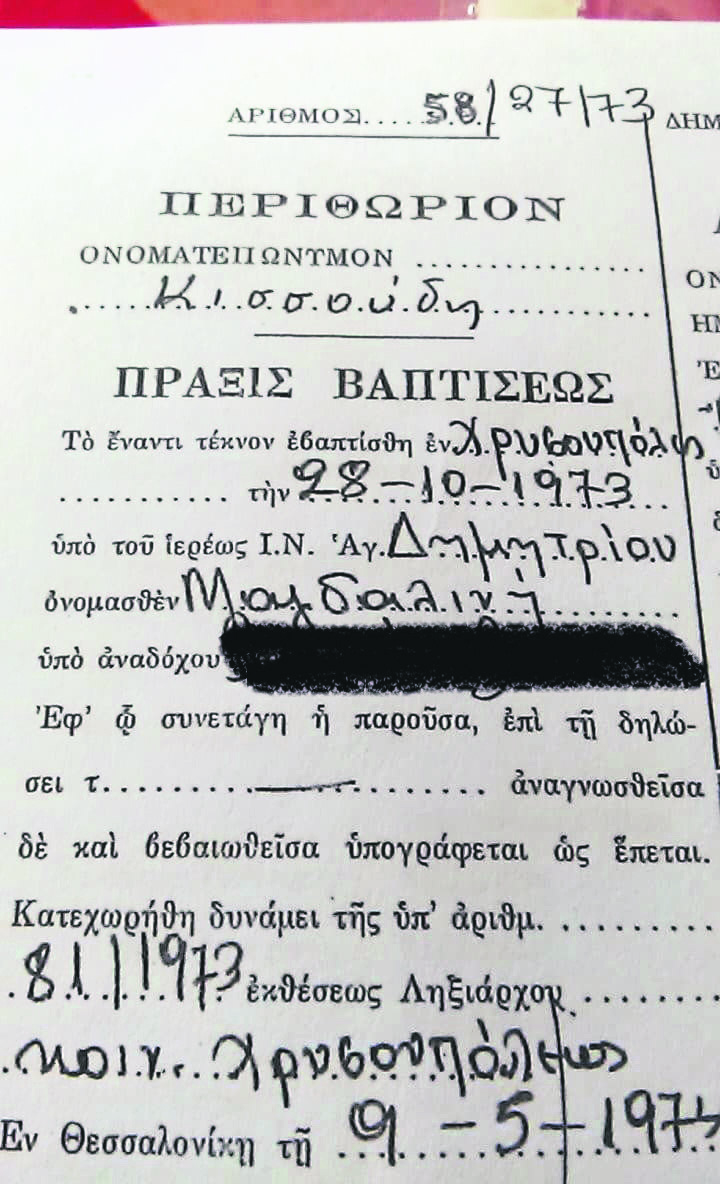 ΑΡΙΘΜΟΣ..... 58/27/73
ΠΕΡΙΘΩΡΙΟΝ
ΟΝΟΜΑΤΕΠΩΝΥΜΟΝ ....................
Κισσούδη
ΠΡΑΞΙΣ ΒΑΠΤΙΣΕΩΣ
Τὸ ἔναντι τέκνον ἐβαπτίσθη ἐν Χρυσουπόλη
........... τὴν 28-10-1973
ὑπὸ τοῦ ἱερέως Ι.Ν. Ἁγ. Δημητρίου
ὀνομασθὲν Μαγδαλινή
ὑπὸ ἀναδόχου
Ἐφ' ᾧ συνετάγη ἡ παροῦσα, ἐπὶ τῇ δηλώ-
σει τ.................... ἀναγνωσθεῖσα
δὲ καὶ βεβαιωθεῖσα ὑπογράφεται ὡς ἕπεται.
Κατεχωρήθη δυνάμει τῆς ὑπ' ἀριθμ. .........
81/1973 ἐκθέσεως Ληξιάρχου ........
κοιν. Χρυσουπόλεως
Εν Θεσσαλονίκη τῇ 9-5-197
ΔΗΜ
ΟΝ
ΗΜ